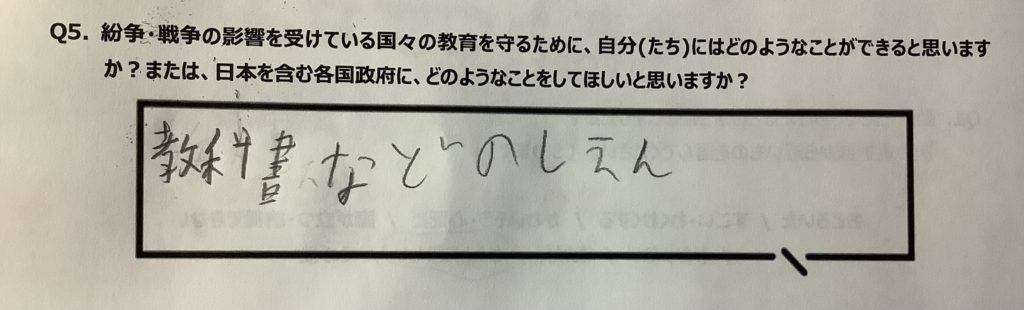 Q5. 紛争・戦争の影響を受けている国々の教育を守るために、自分(たち)にはどのようなことができると思います
か？または、日本を含む各国政府に、どのようなことをしてほしいと思いますか？
教科書などのしえん